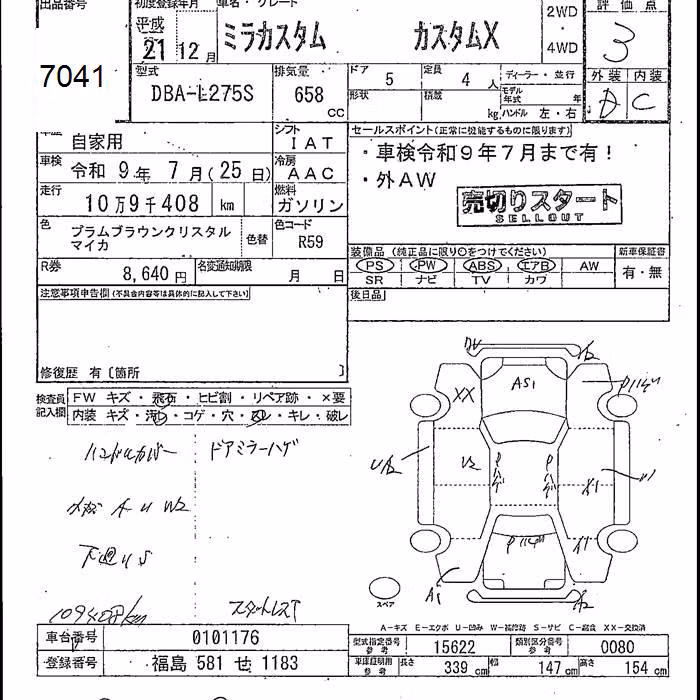 出品番号
7041
初度登録年月
平成
21 12 月
車名・グレード
ミラカスタム カスタムX
2WD
・
4WD
評価点
3
外装 内装
C
型式
DBA-L275S
排気量
658
CC
ドア 5
定員 4 人
ディーラー・並行
形状
積載 kg
モデル年式 年
ハンドル 左・右
自家用
シフト
IAT
車検 令和 9 年 7 月 ( 25 日)
冷房
AAC
走行
10万9千408 km
燃料
ガソリン
色
プラムブラウンクリスタル
マイカ
色替
色コード
R59
R券 8,640 円
名変通知期限
月 日
セールスポイント(正常に機能するものに限ります)
・車検令和9年7月まで有!
・外AW
売切りスタート
SELLOUT
装備品 (純正品に限り○をつけてください)
PS PW ABS エアB AW
SR ナビ TV カワ
新車保証書
有・無
後日品
注意事項申告欄 (不具合内容等は具体的に記入して下さい)
修復歴 有〔箇所 〕
検査員
記入欄
FW キズ・飛石・ヒビ割・リペア跡・×要
内装 キズ・汚レ・コゲ・穴・スレ・キレ・破レ
ハンドルカバー
ドアミラーハゲ
W2
下廻りS
109408km
スタートレスT
AS1
XX
U2
A1
スペア
A-キズ E-エクボ U-凹み W-補修跡 S-サビ C-腐食 XX-交換済
車台番号 0101176
登録番号 福島 581 せ 1183
型式指定番号
参考
15622
類別区分番号
参考
0080
車庫証明用
参考
長さ 339 cm
幅 147 cm
高さ 154 cm